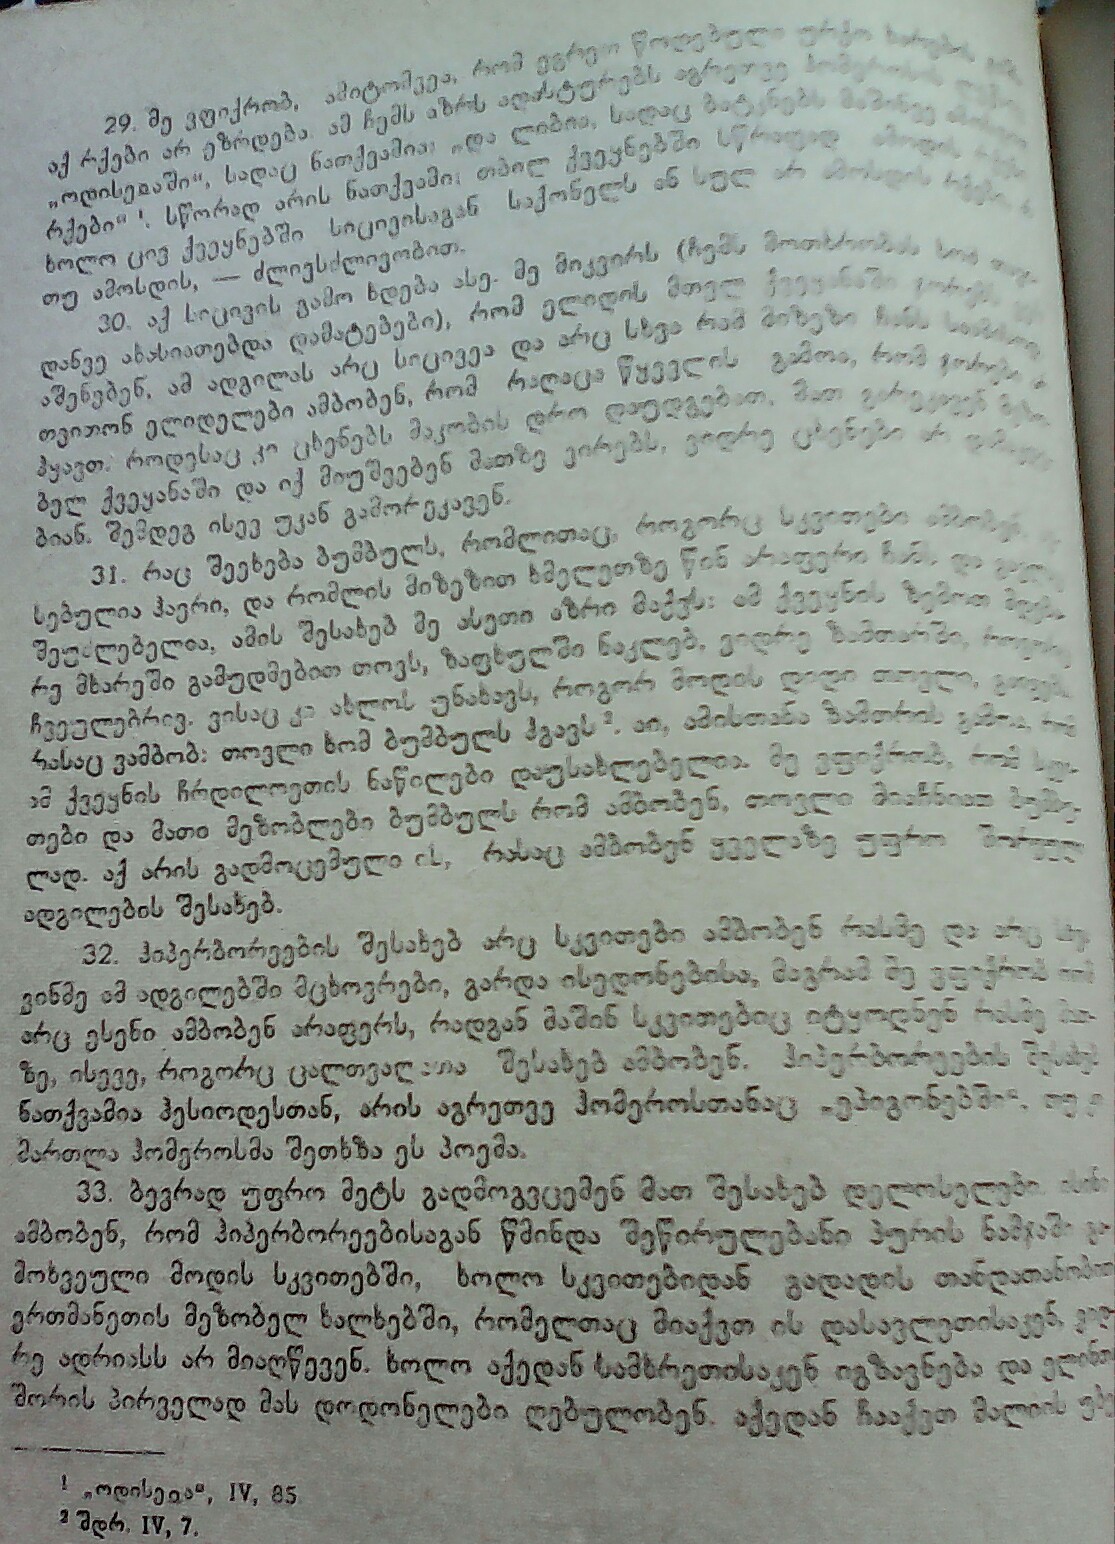 29. მე ვფიქრობ, ამიტომვეა, რომ ეგრეთ წოდებული ურქო ხარების
აქ რქები არ ეზრდება. ამ ჩემს აზრს ადასტურებს აგრეთვე ჰომეროსის
„ოდისეჲაში“, სადაც ნათქვამია: „და ლიბია, სადაც ბატკნებს მაშინვე
რქები“ ¹. სწორად არის ნათქვამი: თბილ ქვეყნებში სწრაფად ამოდის რქები
ხოლო ცივ ქვეყნებში სიცივისაგან საქონელს ან სულ არ ამოსდის რქები, ან
თუ ამოსდის, — ძლივსძლივობით.
30. აქ სიცივის გამო ხდება ასე. მე მიკვირს (ჩემს მოთხრობას ხომ თავი-
დანვე ახასიათებდა დამატებები), რომ ელიდის მთელ ქვეყანაში ჯორებს
აშენებენ, ამ ადგილას არც სიცივეა და არც სხვა რამ მიზეზი ჩანს
თვითონ ელიდელები ამბობენ, რომ რაღაცა წყევლის გამოა, რომ ჯორები არ
ჰყავთ. როდესაც კი ცხენებს მაკობის დრო დაუდგებათ, მათ გარეკავენ მეზო-
ბელ ქვეყანაში და იქ მიუშვებენ მათზე ვირებს, ვიდრე ცხენები არ
ბიან. შემდეგ ისევ უკან გამორეკავენ.
31. რაც შეეხება ბუმბულს, რომლითაც, როგორც სკვითები ამბობენ,
სებულია ჰაერი, და რომლის მიზეზით ხმელეთზე წინ არაფერი ჩანს და
შეუძლებელია, ამის შესახებ მე ასეთი აზრი მაქვს: ამ ქვეყნის ზემოთ
რე მხარეში გამუდმებით თოვს, ზაფხულში ნაკლებ, ვიდრე ზამთარში, როგორც
ჩვეულებრივ. ვისაც კი ახლოს უნახავს, როგორ მოდის დიდი თოვლი,
რასაც ვამბობ: თოვლი ხომ ბუმბულს ჰგავს ². აი, ამისთანა ზამთრის გამოა, რომ
ამ ქვეყნის ჩრდილოეთის ნაწილები დაუსახლებელია. მე ვფიქრობ, რომ სკვი-
თები და მათი მეზობლები ბუმბულს რომ ამბობენ, თოვლი მიაჩნიათ ბუმბუ-
ლად. აქ არის გადმოცემული ის, რასაც ამბობენ ყველაზე უფრო შორეულ
ადგილების შესახებ.
32. ჰიპერბორეების შესახებ არც სკვითები ამბობენ რასმე და არც სხვა
ვინმე ამ ადგილებში მცხოვრები, გარდა ისედონებისა, მაგრამ მე ვფიქრობ
არც ესენი ამბობენ არაფერს, რადგან მაშინ სკვითებიც იტყოდნენ რასმე მათ-
ზე, ისევე, როგორც ცალთვალათა შესახებ ამბობენ. ჰიპერბორეების შესახებ
ნათქვამია ჰესიოდესთან, არის აგრეთვე ჰომეროსთანაც „ეპიგონებში“, თუ კი
მართლა ჰომეროსმა შეთხზა ეს პოემა.
33. ბევრად უფრო მეტს გადმოგვცემენ მათ შესახებ დელოსელები. ისინი
ამბობენ, რომ ჰიპერბორეებისაგან წმინდა შეწირულებანი პურის ნამჯაში გა-
მოხვეული მოდის სკვითებში, ხოლო სკვითებიდან გადადის თანდათანობით
ერთმანეთის მეზობელ ხალხებში, რომელთაც მიაქვთ ის დასავლეთისაკენ, ვიდ-
რე ადრიასს არ მიაღწევენ. ხოლო აქედან სამხრეთისაკენ იგზავნება და ელინთა
შორის პირველად მას დოდონელები ღებულობენ. აქედან ჩააქვთ მალიის უბე
¹ „ოდისეჲა“, IV, 85
² შდრ. IV, 7.